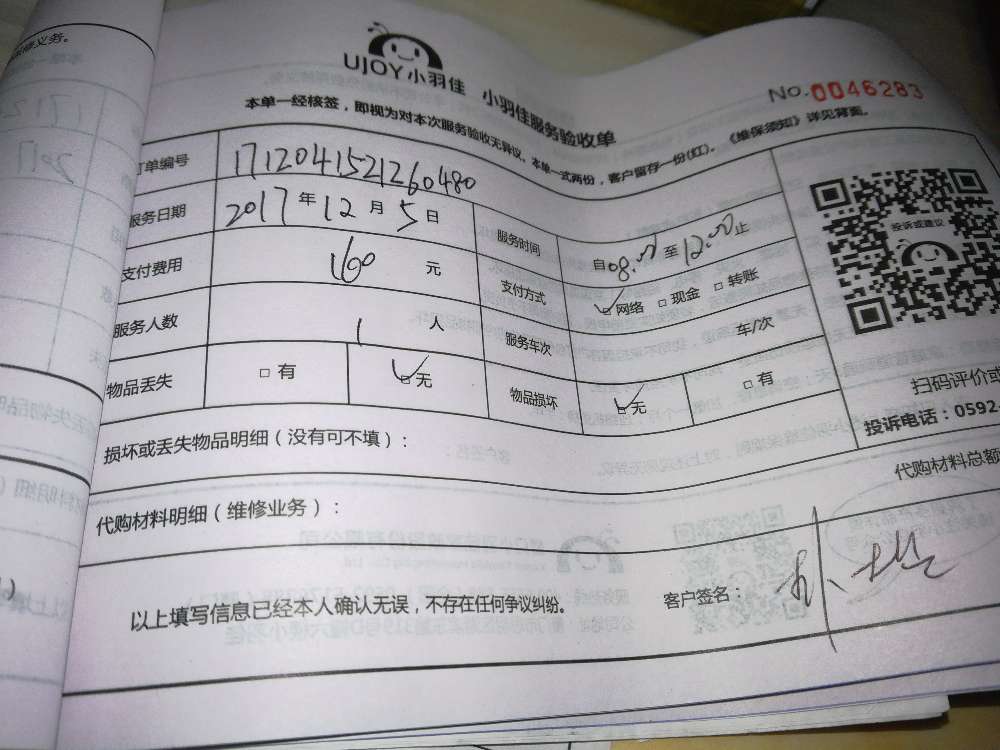 UJOY小羽佳 小羽佳服务验收单
No.0046283
本单一经核签，即视为对本次服务验收无异议。本单一式两份，客户留存一份(红)。《维保须知》详见背面。
订单编号 1712041521260480
服务日期 2017年12月5日 服务时间 自08:00至12:00止
支付费用 160 元 支付方式 ☑网络 □现金 □转账
服务人数 1 人 服务车次 车/次
物品丢失 □有 ☑无 物品损坏 ☑无 □有
投诉或建议
扫码评价或
投诉电话：0592-
损坏或丢失物品明细（没有可不填）：
代购材料明细（维修业务）：
代购材料总额
以上填写信息已经本人确认无误，不存在任何争议纠纷。
客户签名：